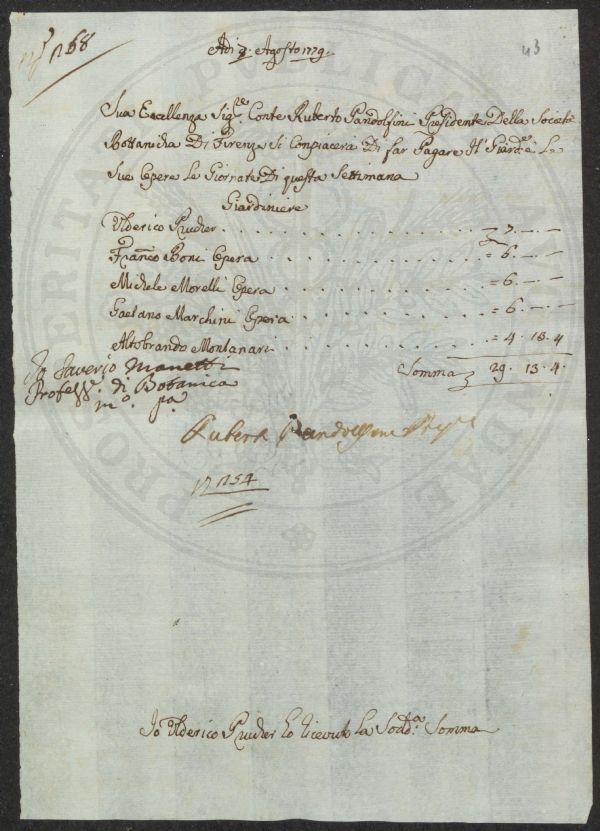 n° 1768
43
Adi 9. Agosto 1779.
Sua Eccellenza Sig.re Conte Ruberto Pandolfini Presidente Della Società
Bottanicha Di Firenze Si Conpiacera Di far Pagare Il Giard.e e Le
Sue Opere Le Giornate Di questa Settimana
Giardiniere
Ulderico Prucker . . . . . . . . . . 7. — —
Franc.o Boni Opera . . . . . . . . = 6. — —
Michele Morelli Opera . . . . . . . = 6. — —
Gaetano Marchini Opera . . . . . . = 6. — —
Altobrando Montanari . . . . . . . = 4. 13. 4
Somma 29. 13. 4.
Io Saverio Manetti
Profess.e di Botanica
m.o pa.
Ruberto Pandolfini Pres.
1754
Io Ulderico Prucker ho Ricevuto La Sodd.a Somma
PROSPERITATI PUBLICAE AUGENDAE